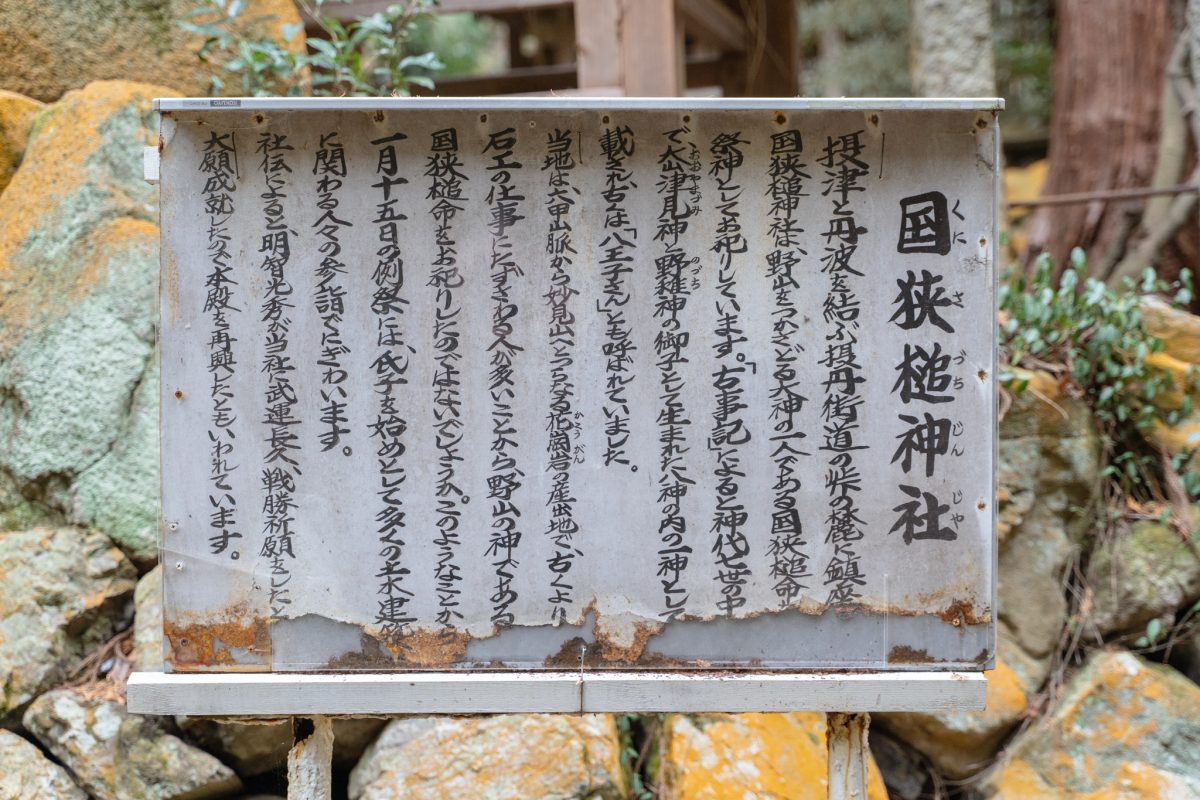 国狭槌神社
くにさづちじんじゃ
摂津と丹波を結ぶ摂丹街道の峠の麓に鎮座
国狭槌神社は、野山をつかさどる大神の一人である国狭槌命
祭神としてお祀りしています。「古事記」によると神代七世の中
で大山津見神と野椎神の御子として生まれた八神の内の一神として
おおやまづみ
のづち
載され、古は「八王子さん」とも呼ばれていました。
当地は、六甲山脈から妙見山へとつらなる花崗岩の産出地で、古くより
かこうがん
石工の仕事にたずさわる人が多いことから、野山の神である
国狭槌命をお祀りしたのではないでしょうか。このようなことか
一月十五日の例祭には、氏子を始めとして多くの土木建
に関わる人々の参詣でにぎわいます。
社伝によると、明智光秀が当社に武運長久、戦勝祈願をしたと
大願成就したので本殿を再興したともいわれています。